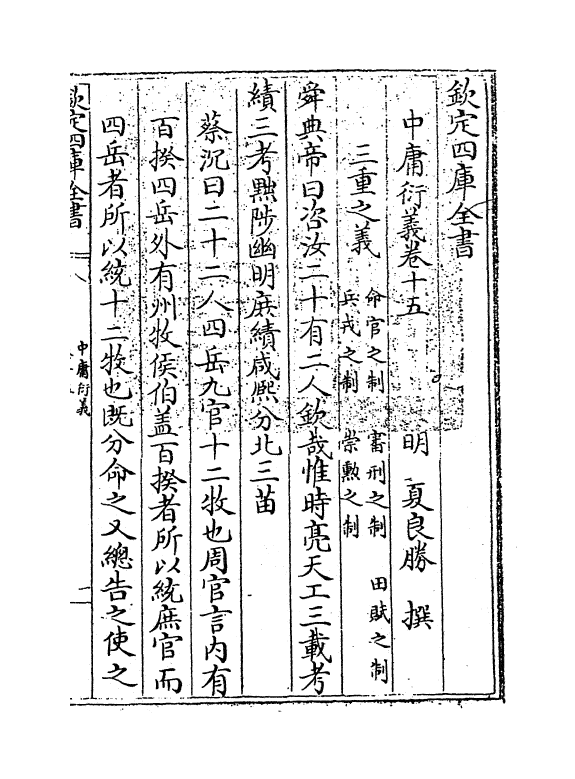 欽定四庫全書
中庸衍義卷十五
明 夏良勝 撰
三重之義
命官之制 審刑之制 田賦之制
兵戎之制 崇勲之制
舜典帝曰咨汝二十有二人欽哉惟時亮天工三載考
績三考黜陟幽明庶績咸熙分北三苗
蔡沉曰二十二人四岳九官十二牧也周官言内有
百揆四岳外有州牧侯伯盖百揆者所以統庶官而
四岳者所以統十二牧也既分命之又總告之使之
欽定四庫全書
中庸衍義
一